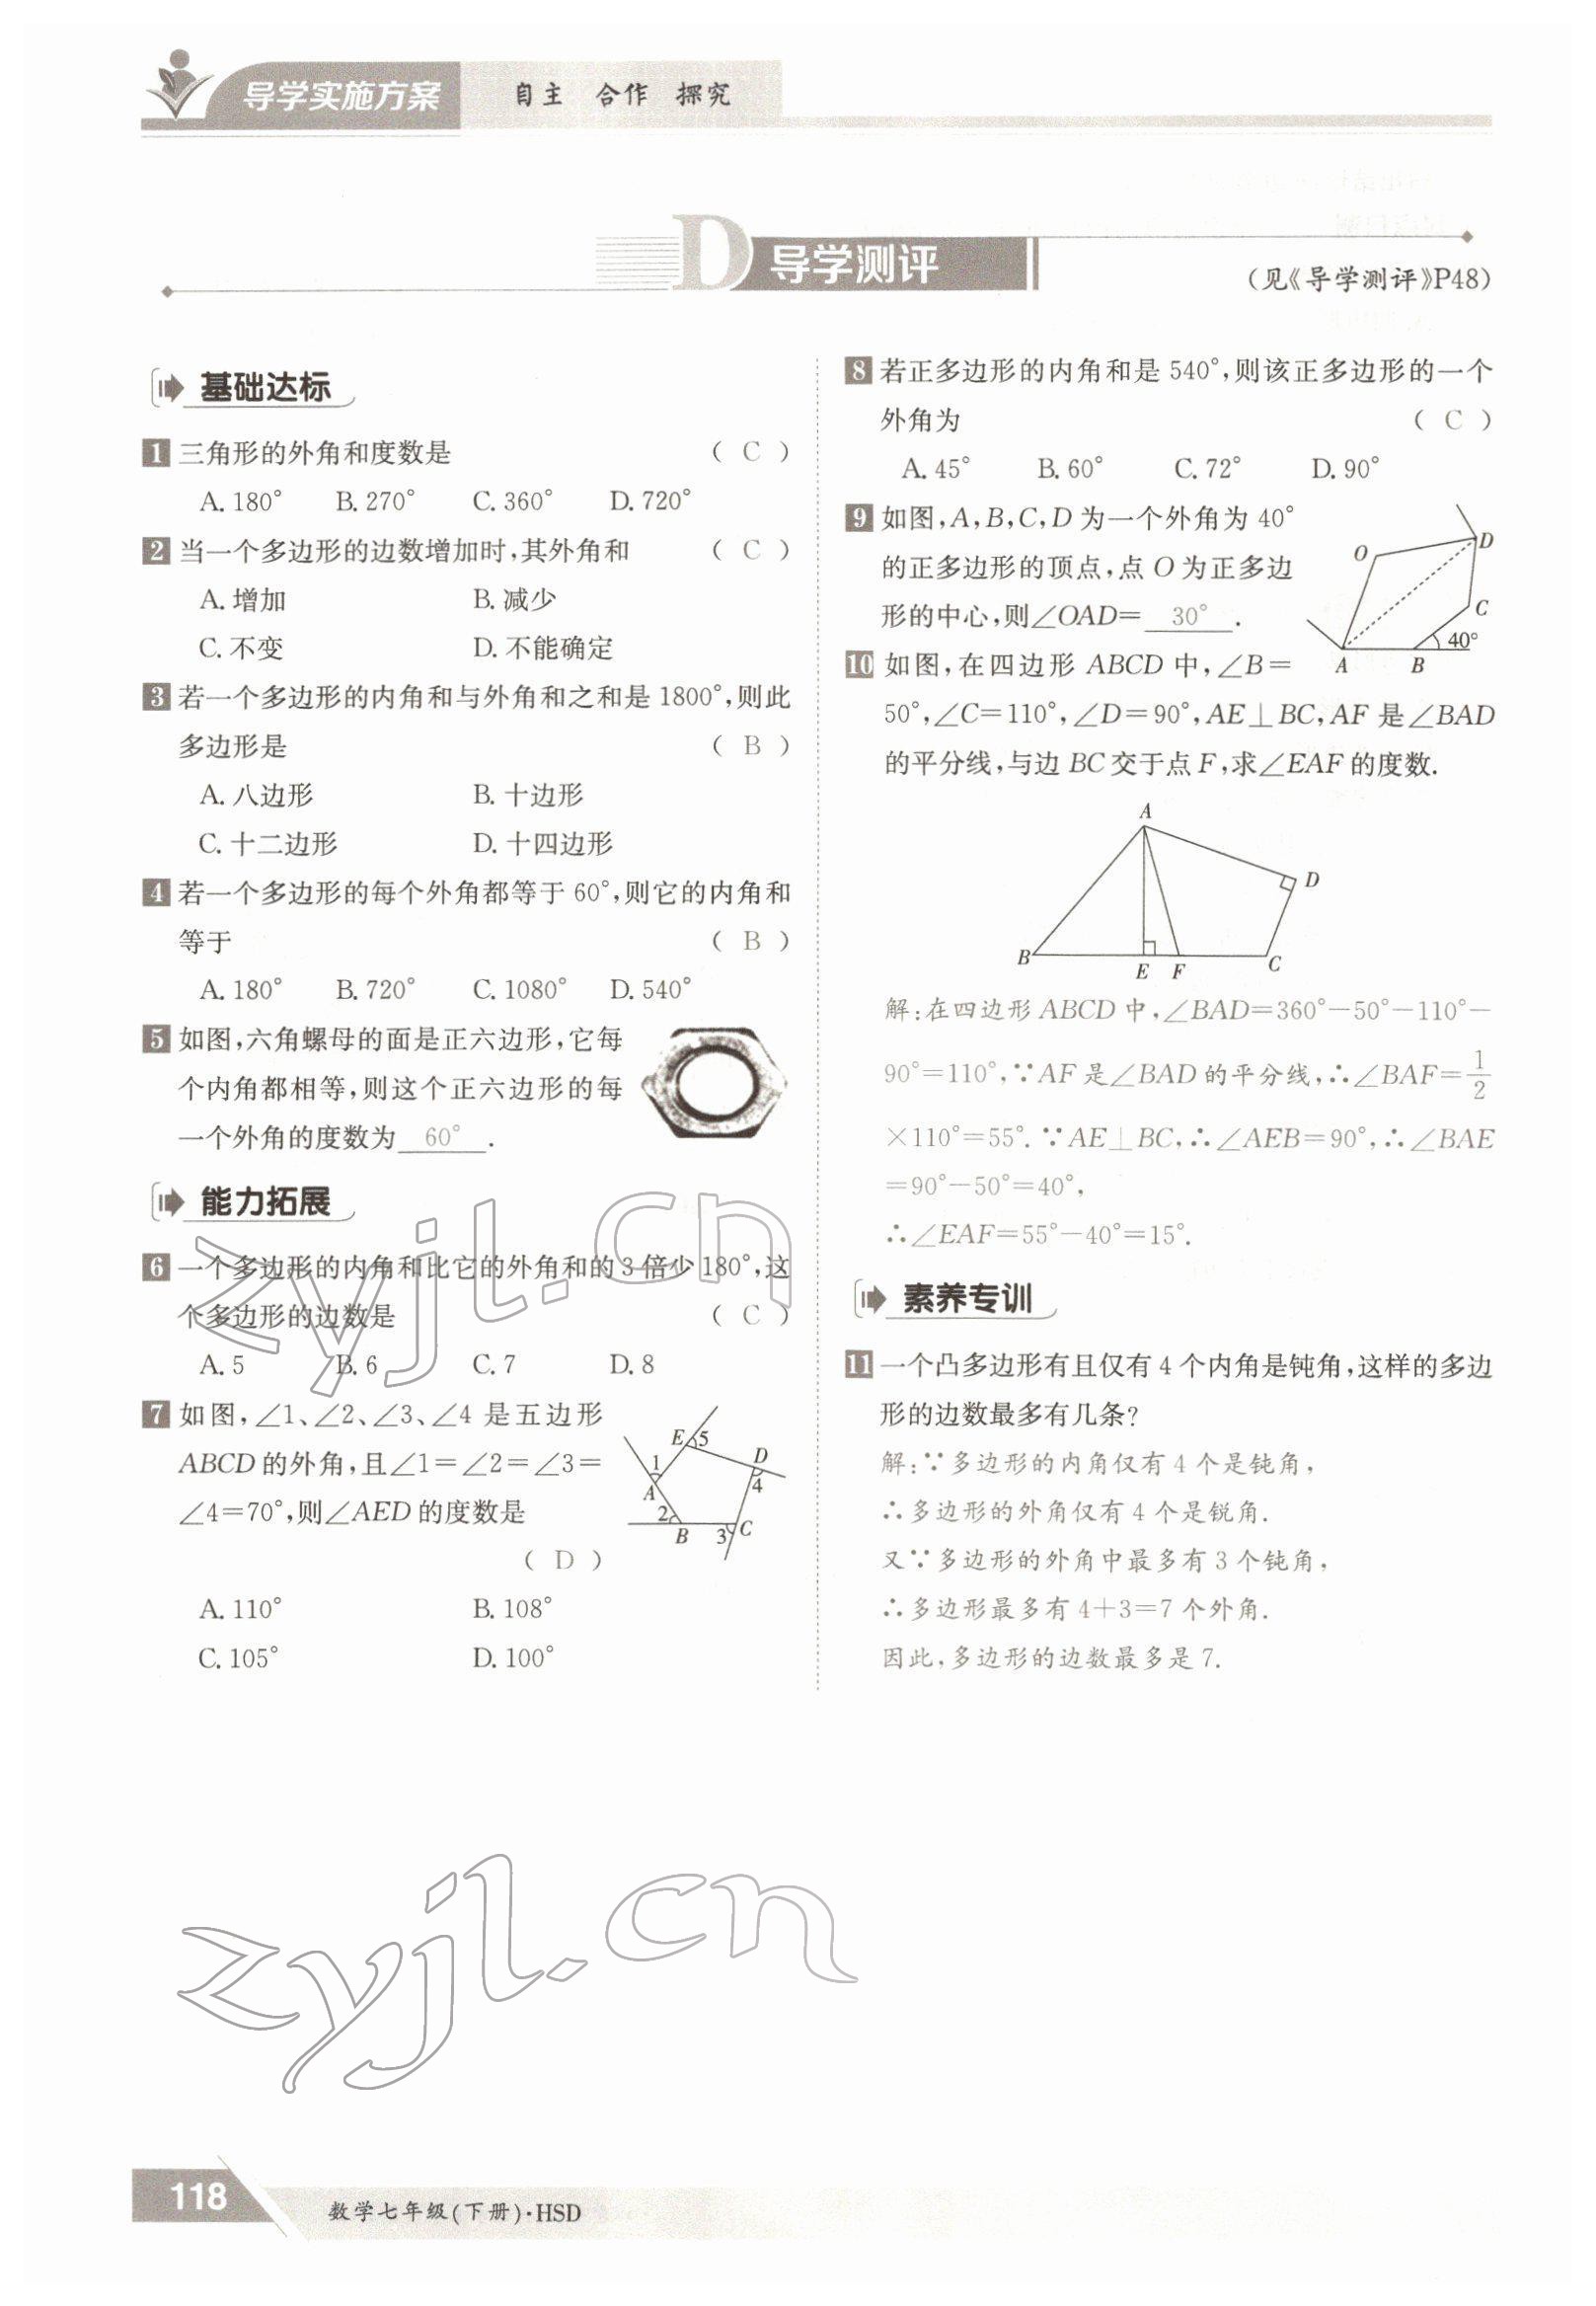 导学实施方案 自主 合作 探究
D 导学测评
(见《导学测评》P48)
基础达标
1 三角形的外角和度数是 ( C )
A. 180° B. 270° C. 360° D. 720°
2 当一个多边形的边数增加时,其外角和 ( C )
A. 增加 B. 减少
C. 不变 D. 不能确定
3 若一个多边形的内角和与外角和之和是 1800°,则此
多边形是 ( B )
A. 八边形 B. 十边形
C. 十二边形 D. 十四边形
4 若一个多边形的每个外角都等于 60°,则它的内角和
等于 ( B )
A. 180° B. 720° C. 1080° D. 540°
5 如图,六角螺母的面是正六边形,它每
个内角都相等,则这个正六边形的每
一个外角的度数为 60° .
能力拓展
6 一个多边形的内角和比它的外角和的 3 倍少 180°,这
个多边形的边数是 ( C )
A. 5 B. 6 C. 7 D. 8
7 如图,∠1、∠2、∠3、∠4 是五边形
ABCD 的外角,且∠1=∠2=∠3=
∠4=70°,则∠AED 的度数是
( D )
A. 110° B. 108°
C. 105° D. 100°
E 5
D
1
4
A
2
B 3 C
8 若正多边形的内角和是 540°,则该正多边形的一个
外角为 ( C )
A. 45° B. 60° C. 72° D. 90°
9 如图,A,B,C,D 为一个外角为 40°
的正多边形的顶点,点 O 为正多边
形的中心,则∠OAD= 30° .
D
O
C
40°
A B
10 如图,在四边形 ABCD 中,∠B=
50°,∠C=110°,∠D=90°,AE⊥BC,AF 是∠BAD
的平分线,与边 BC 交于点 F,求∠EAF 的度数.
A
D
B E F C
解:在四边形 ABCD 中,∠BAD=360°-50°-110°-
90°=110°,∵AF 是∠BAD 的平分线,∴∠BAF=1/2
×110°=55°. ∵AE⊥BC,∴∠AEB=90°,∴∠BAE
=90°-50°=40°,
∴∠EAF=55°-40°=15°.
素养专训
11 一个凸多边形有且仅有 4 个内角是钝角,这样的多边
形的边数最多有几条?
解:∵多边形的内角仅有 4 个是钝角,
∴多边形的外角仅有 4 个是锐角.
又∵多边形的外角中最多有 3 个钝角,
∴多边形最多有 4+3=7 个外角.
因此,多边形的边数最多是 7.
zyjl.cn
zyjl.cn
118 数学七年级(下册)·HSD